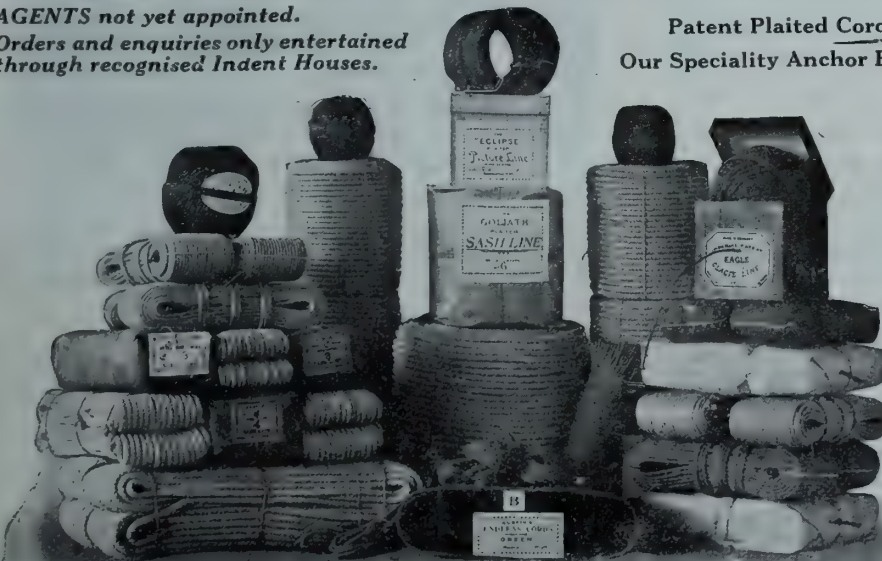 AGENTS not yet appointed.
Orders and enquiries only entertained
through recognised Indent Houses.
Patent Plaited Cord
Our Speciality Anchor B
THE
"ECLIPSE
Picture Line
THE
GOLIATH
SASH LINE
6
EAGLE
GLACIE LINE
B
ENDLESS CORDS
GREEN